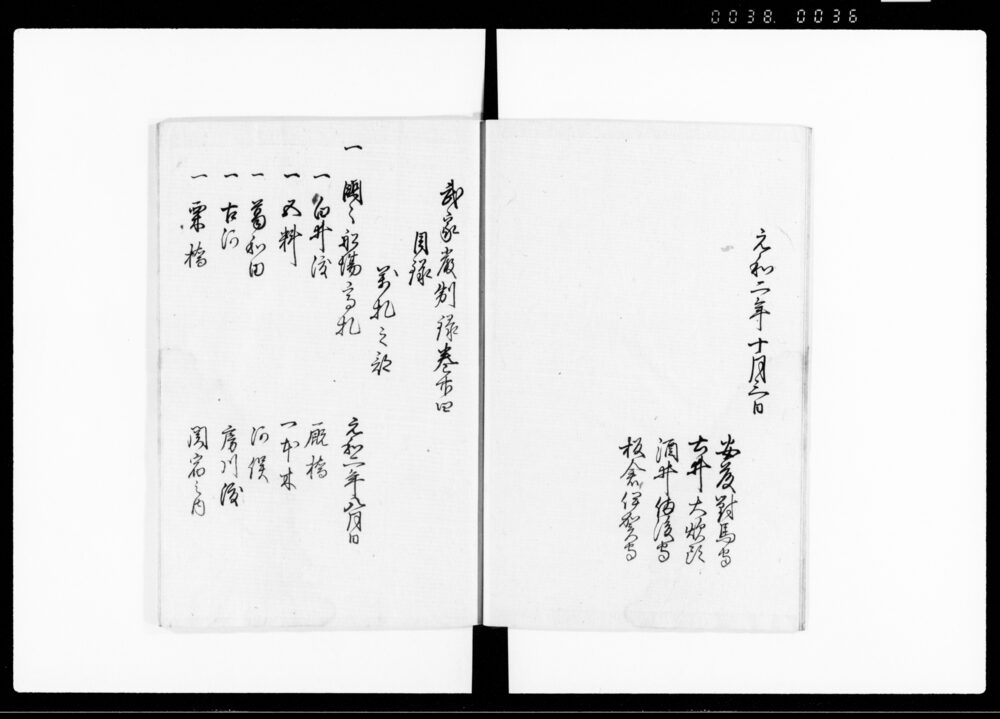 0038. 0036
元和二年十月三日
安藤對馬守
土井大炊頭
酒井備後守
板倉伊賀守
武家嚴制録巻廿四
目録
萬札之部
一 関々船場高札 元和二年八月日
一 白井渡 厩橋
一 五料 一本木
一 葛和田 河俣
一 古河 房川渡
一 栗橋 関宿之内